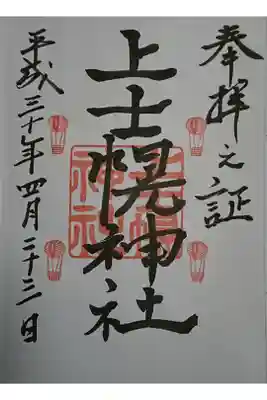 奉拝之証
上士幌神社
平成三十年四月二十三日
上士幌神社